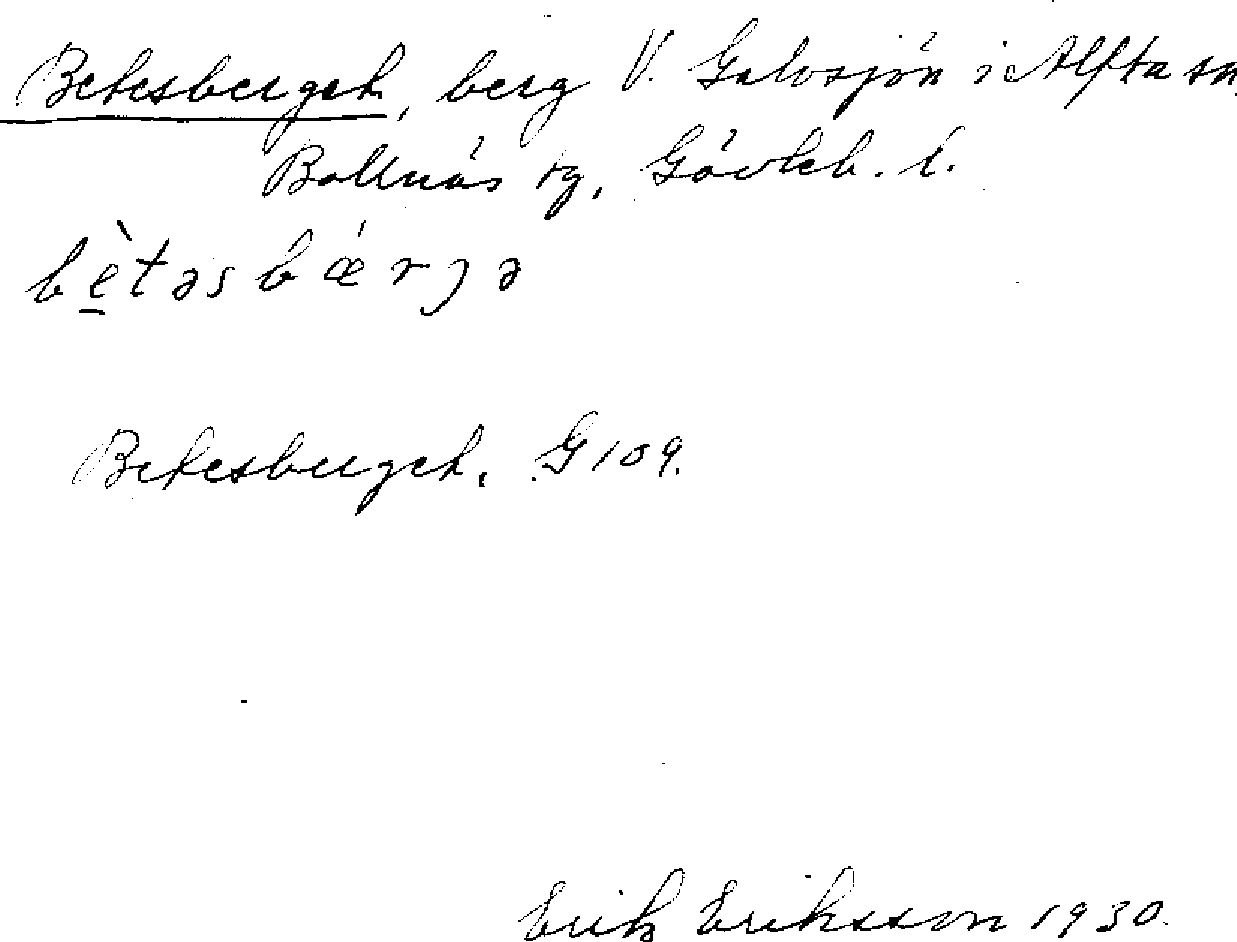 Betesberget, berg V. Galvsjön i Alfta sn.
Bollnäs tg, Gävleb. l.
bè̠təsbǽrjə
Betesberget. G 109.
Erik Eriksson 1930.